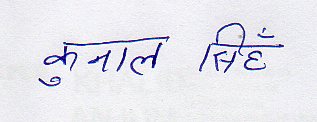 कुनाल सिहँ